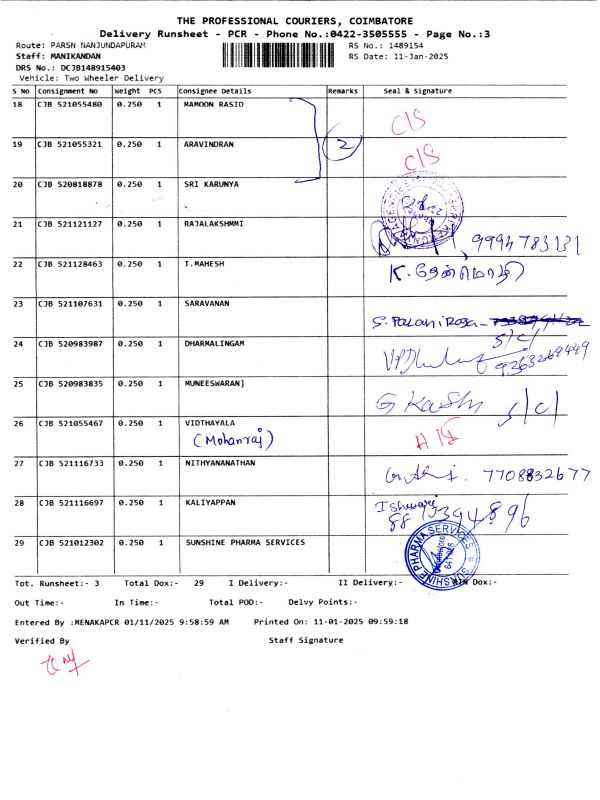 THE PROFESSIONAL COURIERS, COIMBATORE
Delivery Runsheet - PCR - Phone No.:0422-3505555 - Page No.:3
Route: PARSN NANJUNDAPURAM RS No.: 1489154
Staff: MANIKANDAN RS Date: 11-Jan-2025
DRS No.: DCJB148915403
Vehicle: Two Wheeler Delivery
S No Consignment No Weight PCS Consignee Details Remarks Seal & Signature
18 CJB 521055480 0.250 1 MAMOON RASID C/S
19 CJB 521055321 0.250 1 ARAVINDRAN 2 C/S
20 CJB 520818878 0.250 1 SRI KARUNYA
21 CJB 521121127 0.250 1 RAJALAKSHMMI 9994783131
22 CJB 521128463 0.250 1 T.MAHESH K.
23 CJB 521107631 0.250 1 SARAVANAN S. Palani Raja
24 CJB 520983987 0.250 1 DHARMALINGAM S/C/ 9263269449
25 CJB 520983835 0.250 1 MUNEESWARAN] S/C/
26 CJB 521055467 0.250 1 VIDTHAYALA
(Mohanraj)
27 CJB 521116733 0.250 1 NITHYANANATHAN 7708832677
28 CJB 521116697 0.250 1 KALIYAPPAN
29 CJB 521012302 0.250 1 SUNSHINE PHARMA SERVICES SUNSHINE PHARMA SERVICES
Tot. Runsheet:- 3 Total Dox:- 29 I Delivery:- II Delivery:- Dox:-
Out Time:- In Time:- Total POD:- Delvy Points:-
Entered By :MENAKAPCR 01/11/2025 9:58:59 AM Printed On: 11-01-2025 09:59:18
Verified By Staff Signature